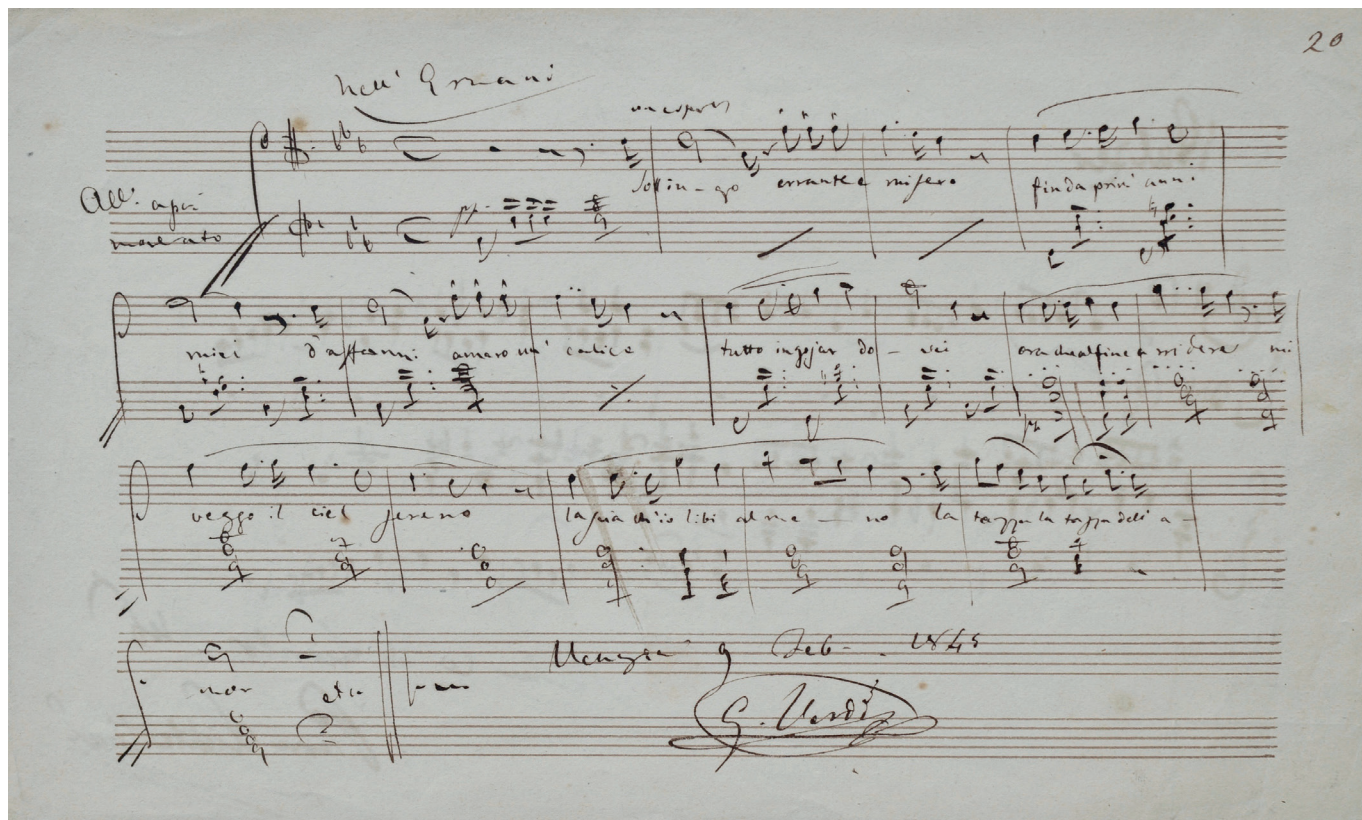 20
nell' Ernani
con espres
Solin-go errante e misero fin da prim' anni
All.° assai
moderato
pp.
miei d'affanni amaro un' calice tutto ingojar do-vei ora che alfine arridere mi
veggo il ciel sereno lascia ch'io libi alme-no la tazza la tazza dell a-
mor etc
Venezia 9 Feb. 1845
G. Verdi